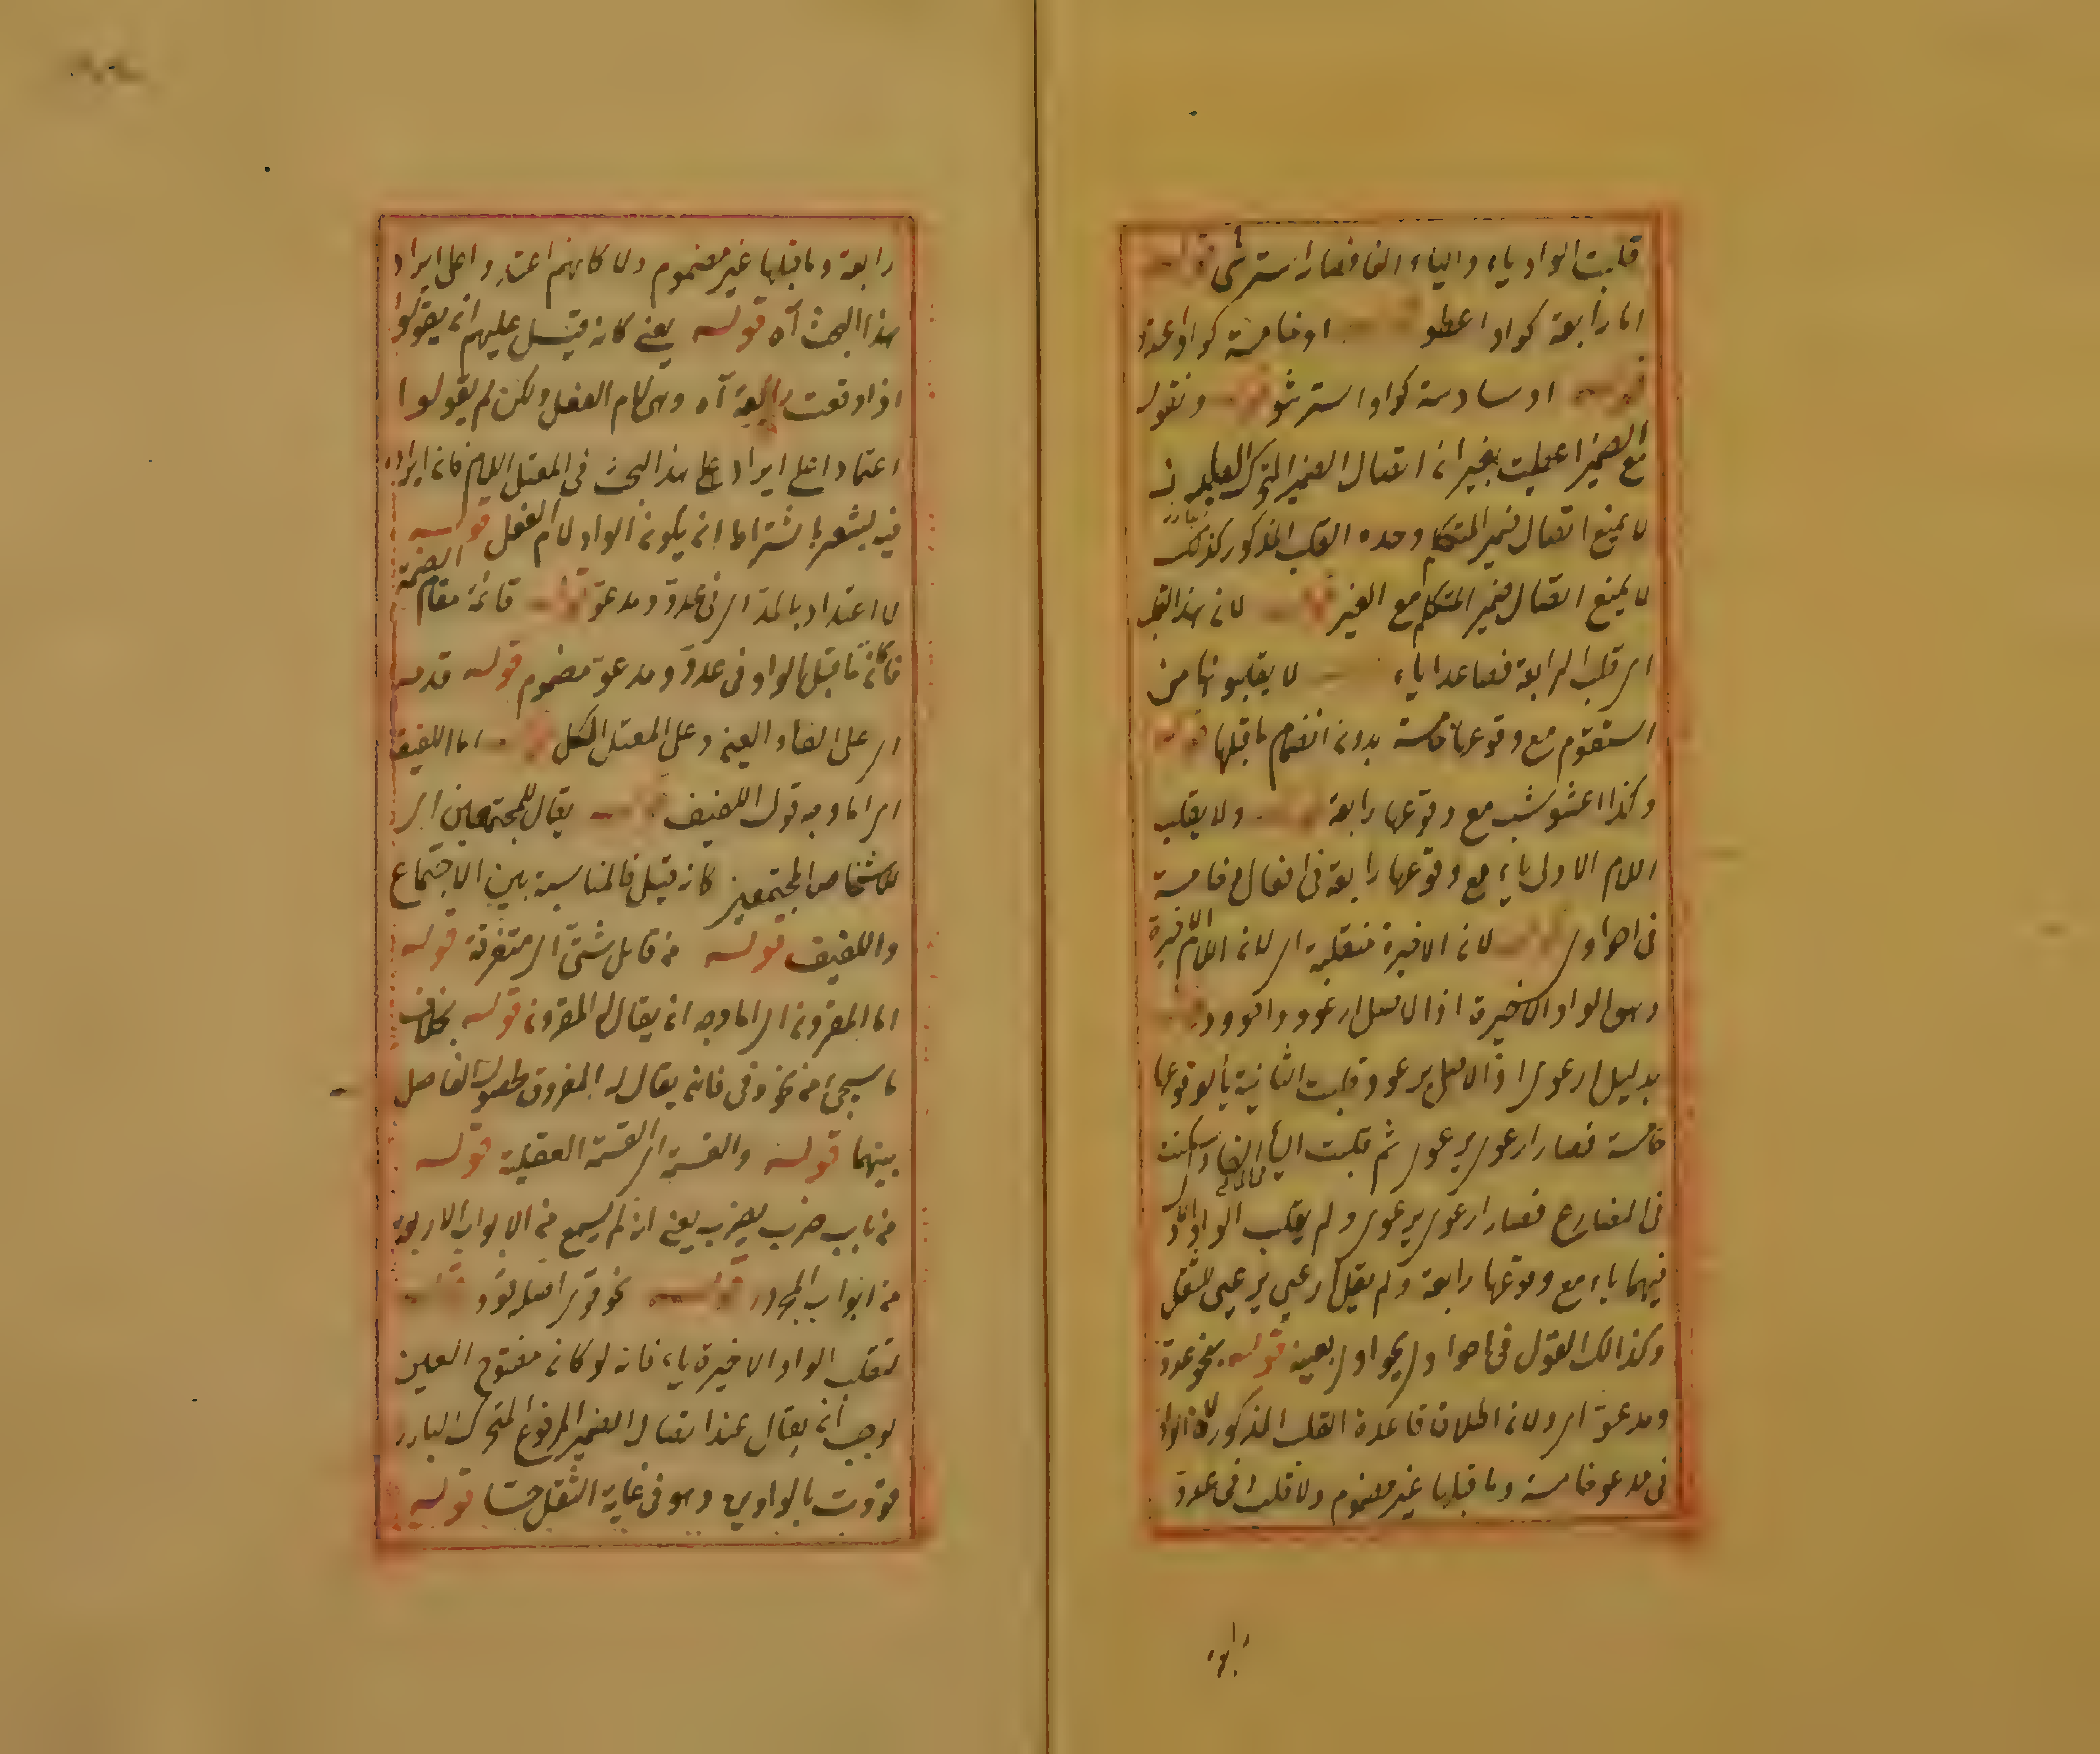 قلبت الواو ياء والياء الفا فصار استرشى قوله
اما رابعة كواو اعطو او خامسة كواو اعتدو
قوله او سادسة كواو استرشو قوله وتقول
مع الضمير اعطيت بغير ان اتصال الضمير المتحرك
لا يمنع اتصال ضمير المتكلم وحده القلب المذكور كذلك
لا يمنع اتصال ضمير المتكلم مع الغير قوله لان هذا القلب
اى قلب الرابعة فصاعدا ياء لا يقلبونها من
استقوم مع وقوعها خامسة بدون انضمام ما قبلها قوله
وكذا اعشوشب مع وقوعها رابعة قوله ولا يقلب
اللام الاولى ياء مع وقوعها رابعة فى افعال خامسة
فى احواوى قوله لان الاخيرة منقلبة اى لان اللام الاخيرة
وهى الواو الاخيرة اذ الاصل ارعوو واحووو
بدليل ارعوى اذ الاصل يرعوو قلبت الثانية ياء لوقوعها
خامسة فصار ارعوى يرعوى ثم قلبت الياء الفا وسكنت
فى المضارع فصار ارعوى يرعوى ولم يقلب الواو الاولى
فيهما ياء مع وقوعها رابعة ولم يقل ارعيى يرعيى للثقل
وكذالك القول فى احواوى يحواوى بعينه قوله بنحو عدوّ
ومدعوّ اى ولان اطلاق قاعدة القلب المذكورة لان الواو
فى مدعو خامسة وما قبلها غير مضموم ولا قلب وفى عدوّ
رابعة
رابعة وما قبلها غير مضموم ولا كانهم اعتمدوا على ايراد
هذا البحث آه قوله يعنى كانه قيل عليهم ان يقولوا
اذا وقعت رابعة آه وهى لام الفعل ولكن لم يقولوا
اعتمادا على ايراد هذا البحث فى المعتل اللام فان ايراده
فيه يشعر باشتراط ان يكون الواو لام الفعل قوله
لا اعتداد بالمدّ اى فى عدوّ ومدعوّ قوله قائمة مقام الضمة
فكان ما قبل الواو فى عدوّ ومدعوّ مضموم قوله قدمه
اى على الفاء والعين وعلى المعتل الكل قوله اما اللفيف
اى اما وجه قول اللفيف قوله يقال للمجتمعين اى
للاشخاص المجتمعين كانه قيل فالمناسبة بين الاجتماع
واللفيف قوله من قبائل شتّى اى متفرقة قوله
اما المقرون اى اما وجه ان يقال له المقرون قوله بخلاف
ما سيجئ من نحو وقى فانه يقال له المفروق لحصول الفاصل
بينهما قوله والقسمة اى القسمة العقلية قوله
من باب ضرب يضرب يعنى انه لم يسمع من الابواب الاربعة
من ابواب المجرد قوله نحو قوى اصله قوو قوله
لتقلب الواو الاخيرة ياء فانه لو كان مفتوح العين
لوجب ان يقال عند اتصال الضمير المرفوع المتحرك البارز
قووت بالواوين وهو فى غاية الثقل حسّا قوله